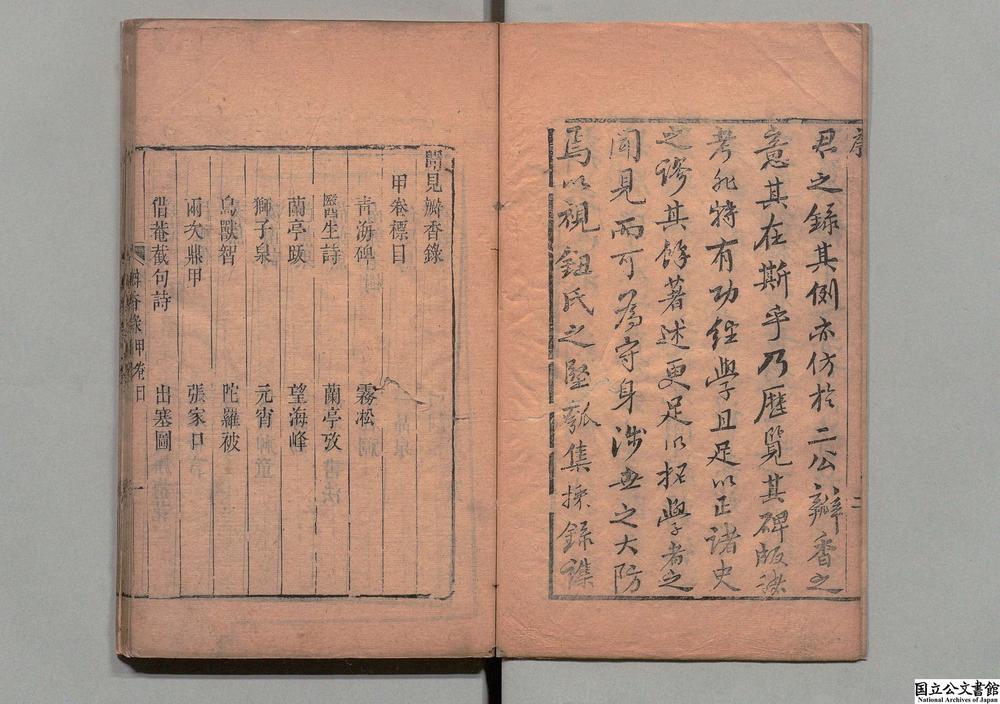 序
君之錄其例亦仿於二公瓣香之
意其在斯乎乃歷覽其碑版諸
考非特有功經學且足以正諸史
之謬其餘著述更足以拓學者之
聞見而可為守身涉世之大防
焉以視鈕氏之堅瓠集操錄謙
二
聞見瓣香錄
甲卷標目
青海碑 霧凇
醫生詩 蘭亭攷
蘭亭跋 望海峰
獅子泉 元宵
鳥獸智 陀羅被
兩次鼎甲 張家口
借菴截句詩 出塞圖
瓣香錄甲卷目
一
国立公文書館
National Archives of Japan